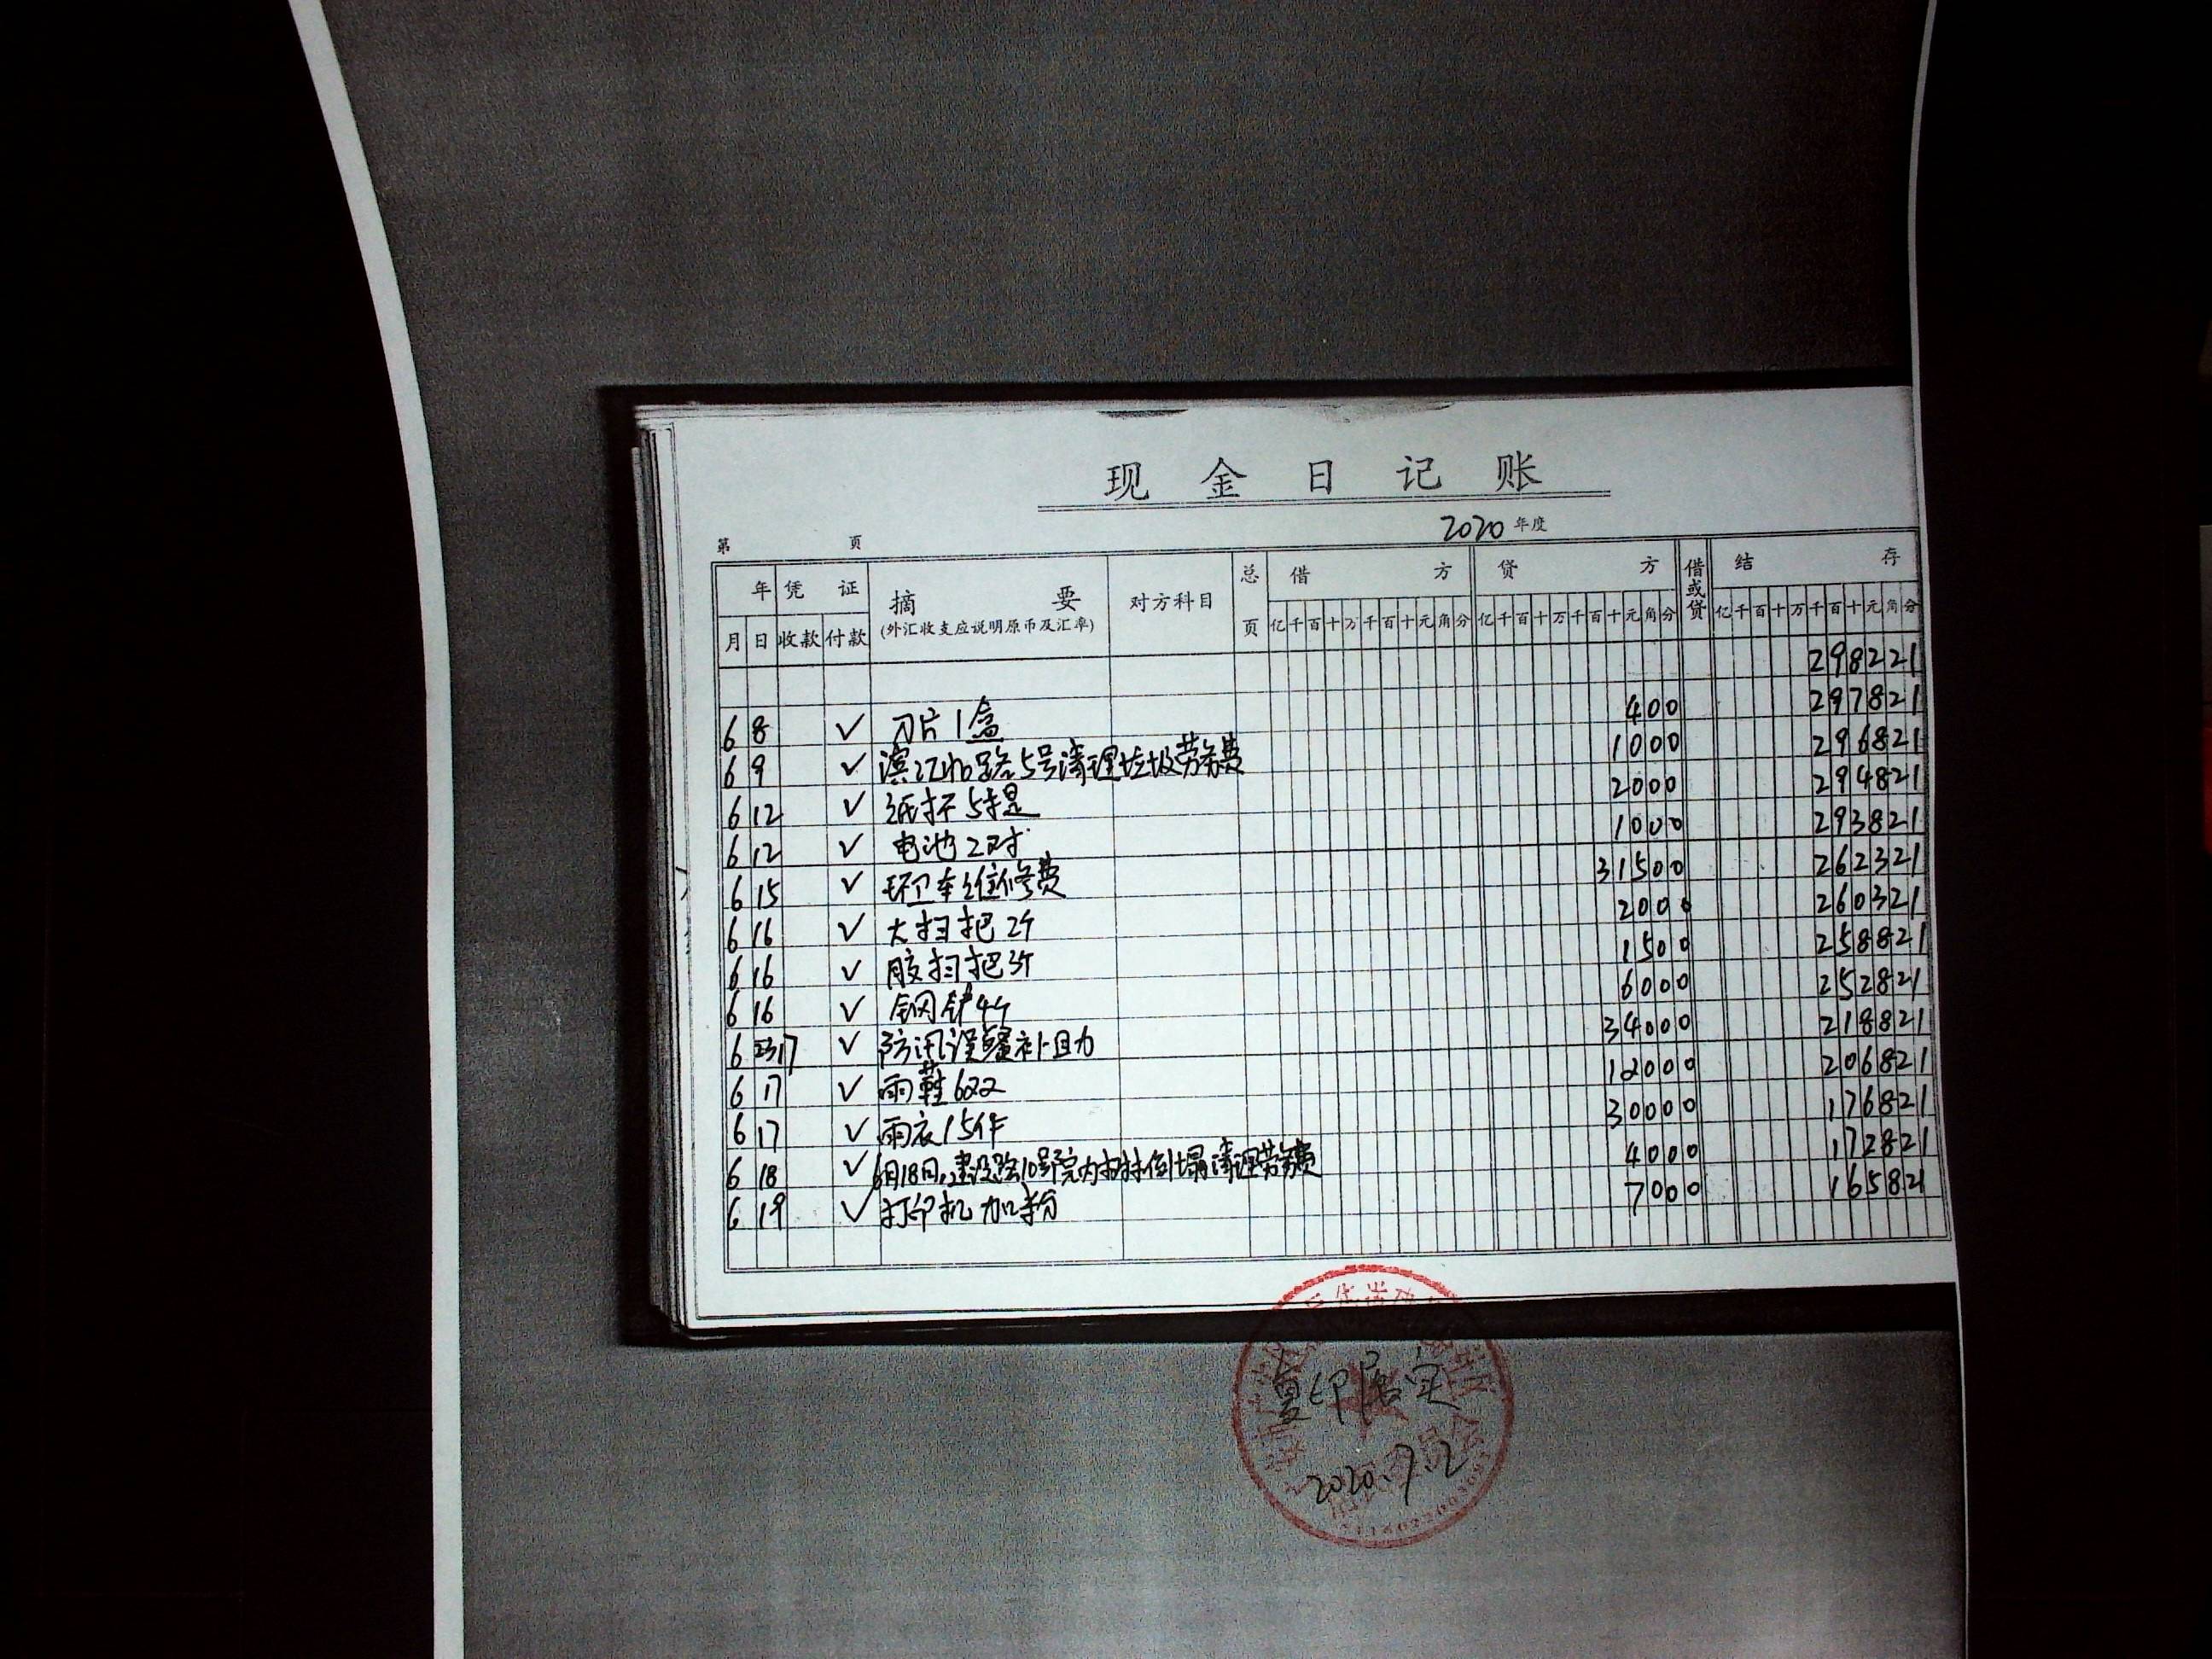 现金日记账
2020年度
第 页
年 凭证 摘要 对方科目 总页 借方 贷方 借或贷 结存
月 日 收款 付款 (外汇收支应说明原币及汇率) 亿千百十万千百十元角分 亿千百十万千百十元角分 亿千百十万千百十元角分
298221
6 8 √ 刀片1盒 400 297821
6 9 √ 滨江 路5号清理垃圾劳务费 1000 296821
6 12 √ 纸杯5提 2000 294821
6 12 √ 电池2对 1000 293821
6 15 √ 环卫车维修费 31500 262321
6 16 √ 大扫把2个 2000 260321
6 16 √ 胶扫把3个 1500 258821
6 16 √ 钢铲4个 6000 252821
6 17 √ 防汛 补助 34000 218821
6 17 √ 雨鞋6双 12000 206821
6 17 √ 雨衣15件 30000 176821
6 18 √ 6月18日,建设路10号院内树倒塌清理劳务费 4000 172821
6 19 √ 打印机加粉 7000 165821
复印属实
2020.7.2